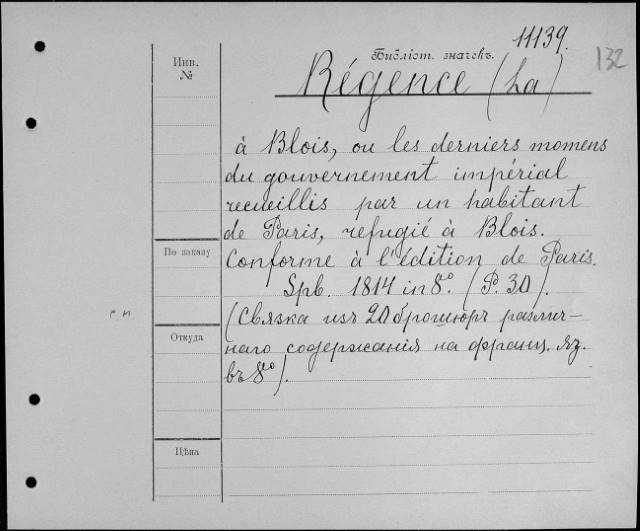 11139.
132
Библіот. значекъ.
Инв.
№
Régence (La)
à Blois, ou les derniers momens
du gouvernement impérial
recueillis par un habitant
de Paris, refugié à Blois.
По заказу
Conforme à l'édition de Paris.
Spb. 1814 in 8º. (P. 30).
с. п
(Связка изъ 20 брошюръ различ-
Откуда
наго содержанія на франц. яз.
въ 8º).
Цѣна